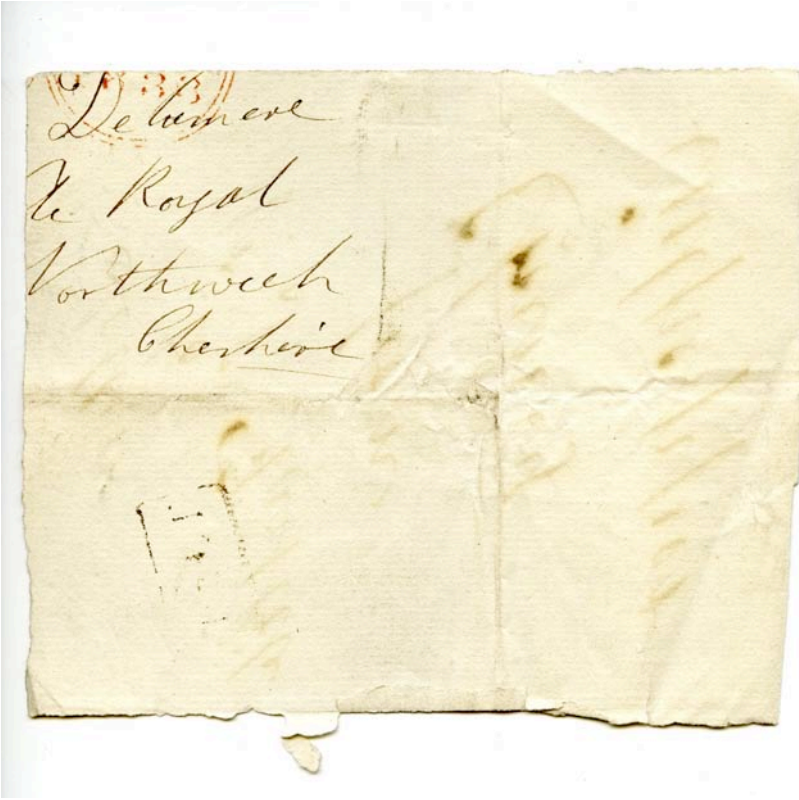 Delamere
le Royal
Northwich
Cheshire